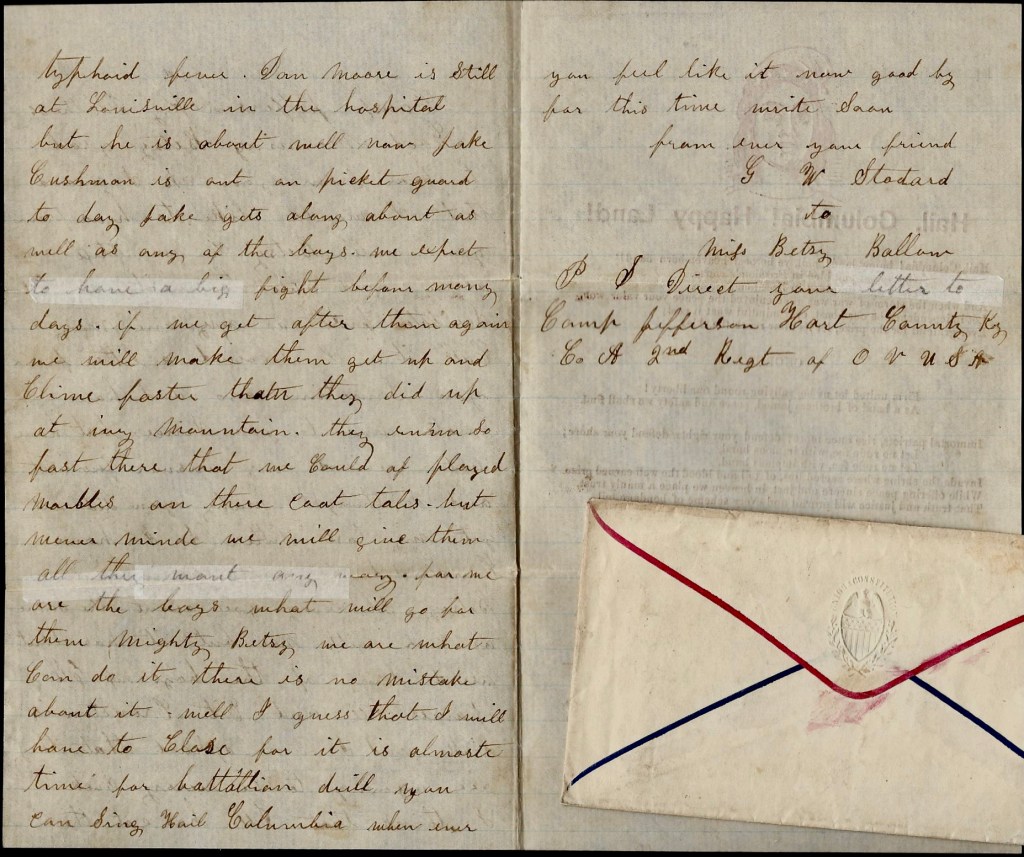 typhoid fever. Dan Moore is Still
at Louisville in the hospital
but he is about well now Jake
Cushman is out on picket guard
to day Jake gets along about as
well as any of the boys. we expect
to have a big fight before many
days. if we get after them again
we will make them get up and
Clime faster than they did up
at ivey Mountain. they run so
fast there that we Could of played
Marbles on there Coat tales. but
never minde we will give them
all they want any way. for we
are the boys what will go for
them Mighty Betsy we are what
Can do it there is no Mistake
about it. well I guess that I will
have to Close for it is almoste
time for battallion drill you
can Sing Hail Columbia when ever
you feel like it now good by
for this time write Soon
from ever your friend
G W Stodard
to
Miss Betsy Ballow
P S Direct your letter to
Camp Jefferson Hart County Ky
Co A 2nd Regt of O V U S A
Hail Columbia! Happy Land!